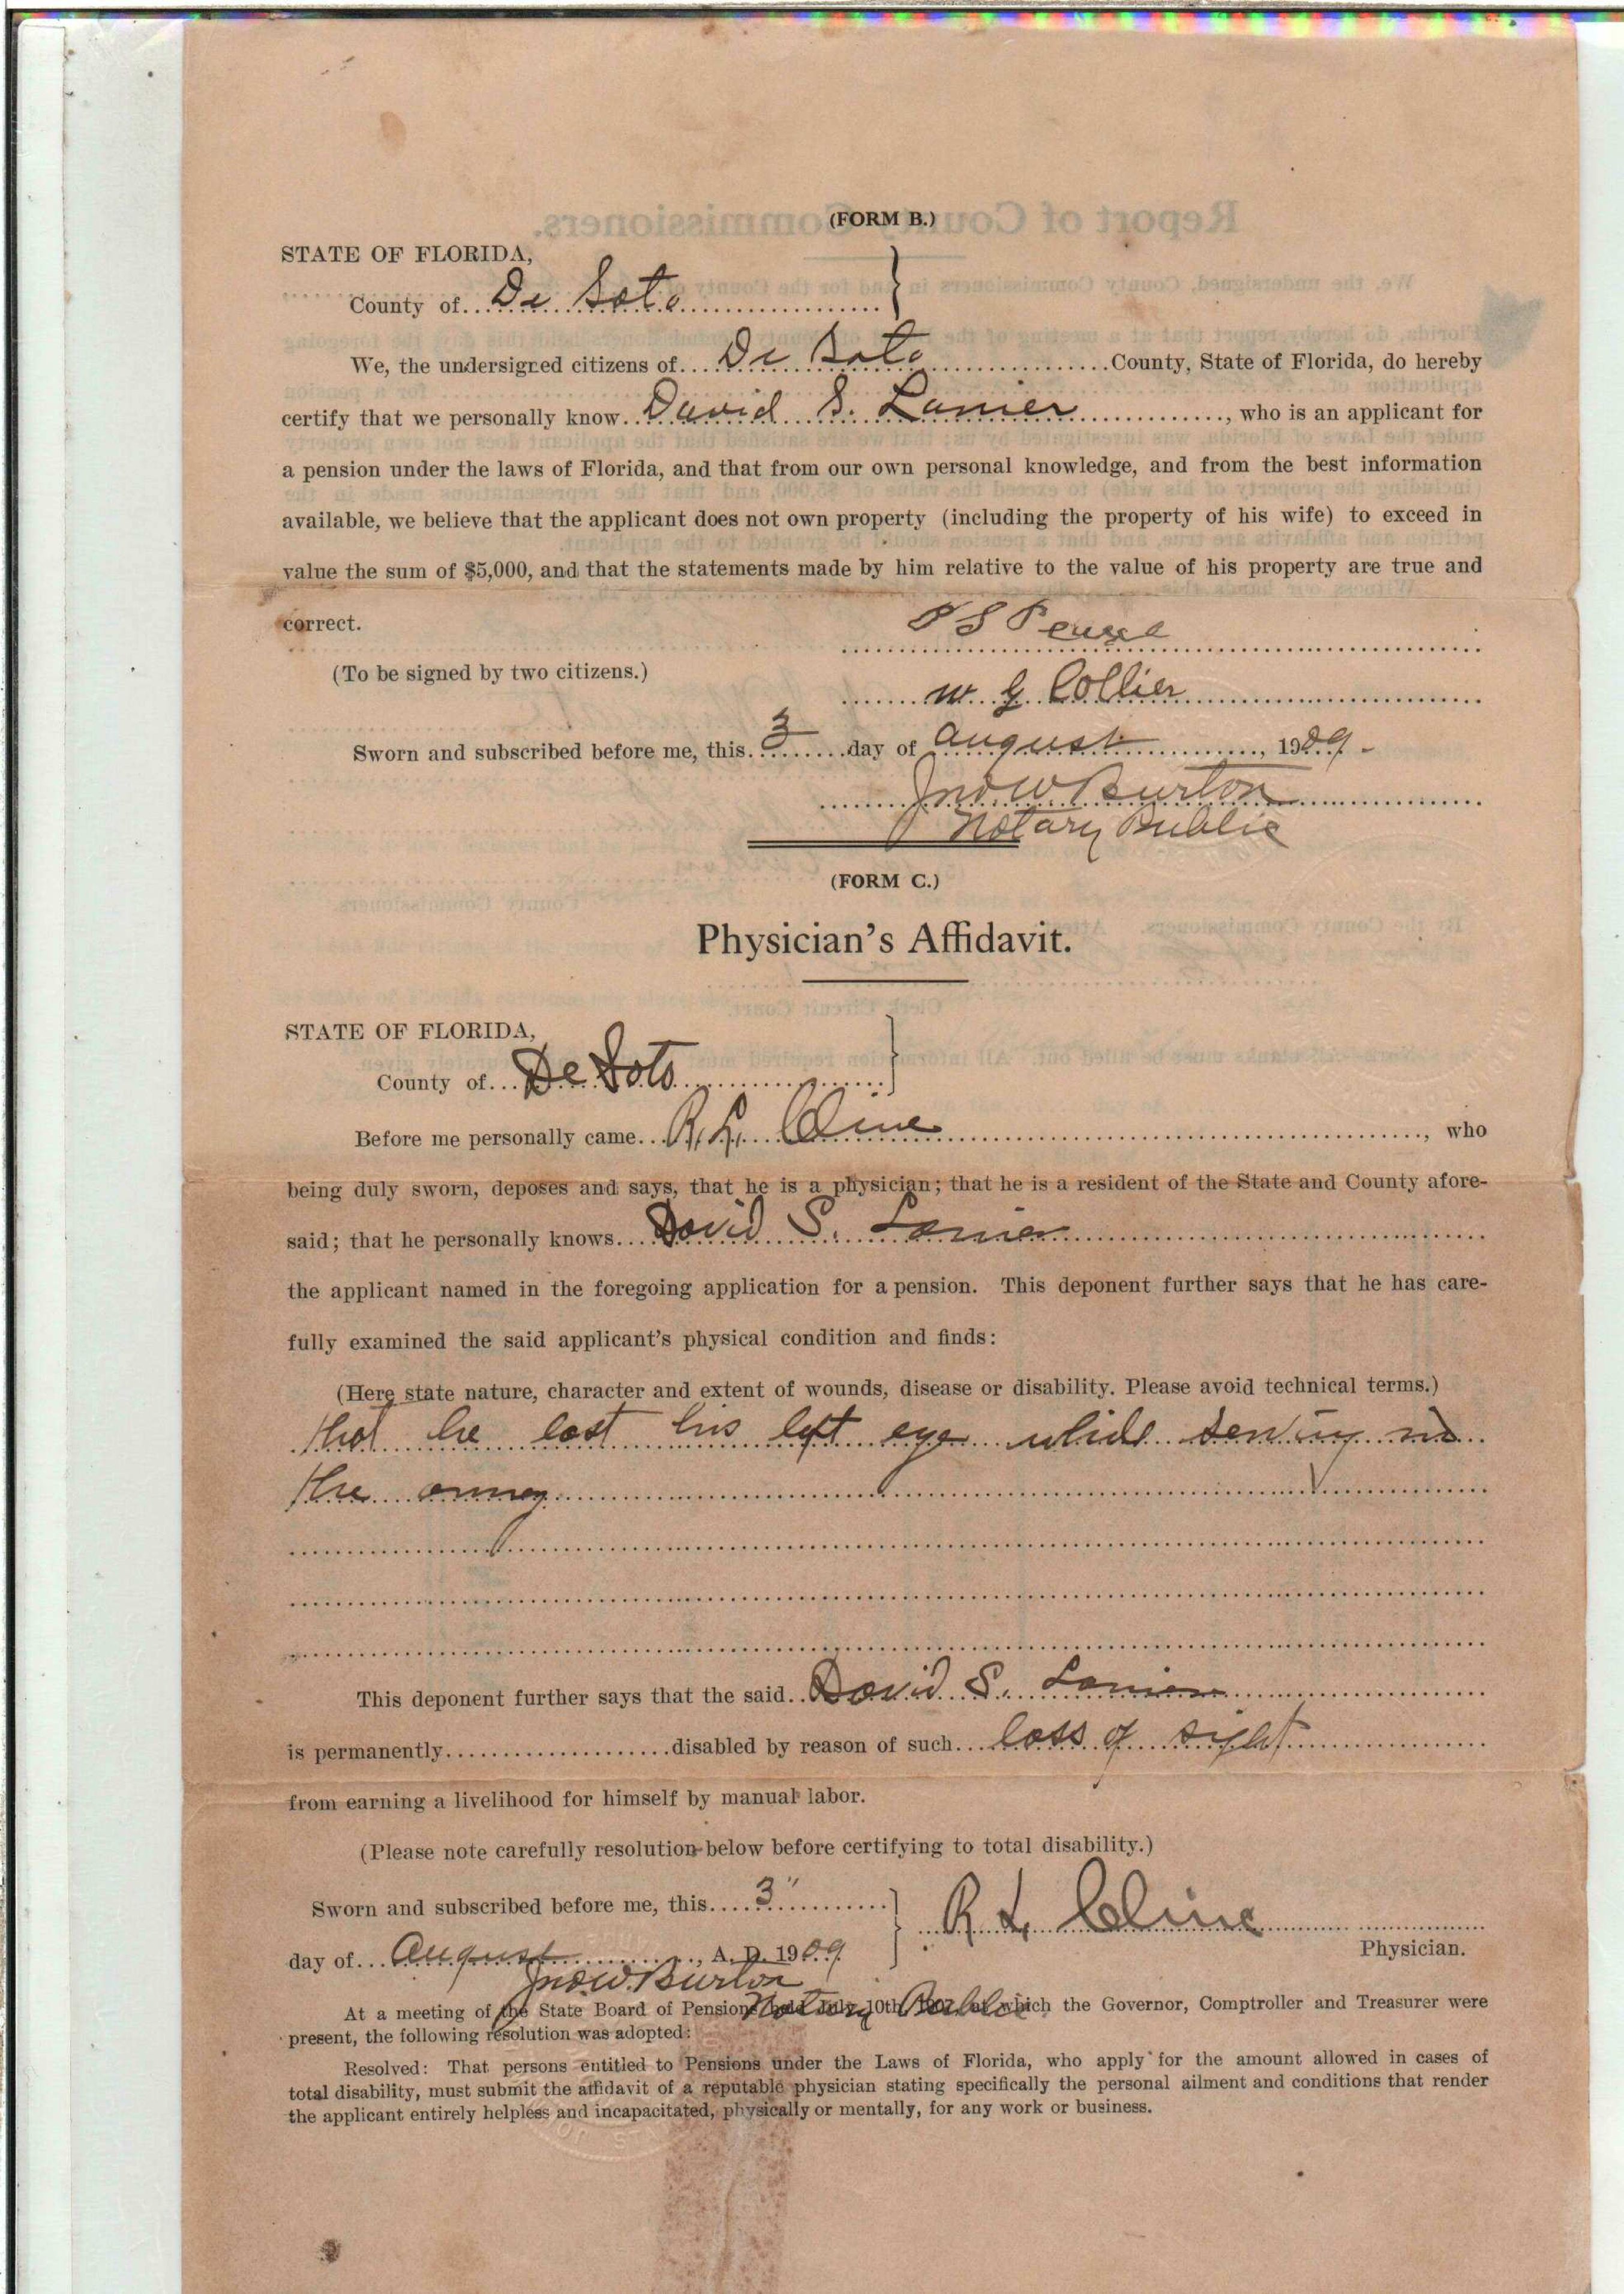 (FORM B.)
STATE OF FLORIDA,
County of De Soto
We, the undersigned citizens of De Soto County, State of Florida, do hereby
certify that we personally know David S. Lanier, who is an applicant for
a pension under the laws of Florida, and that from our own personal knowledge, and from the best information
available, we believe that the applicant does not own property (including the property of his wife) to exceed in
value the sum of $5,000, and that the statements made by him relative to the value of his property are true and
correct.
S
(To be signed by two citizens.)
W. G. Collier
Sworn and subscribed before me, this 3 day of August, 1909.
Jno W Burton
Notary Public
(FORM C.)
Physician's Affidavit.
STATE OF FLORIDA,
County of De Soto
Before me personally came R. L. Cline, who
being duly sworn, deposes and says, that he is a physician; that he is a resident of the State and County afore-
said; that he personally knows David S. Lanier
the applicant named in the foregoing application for a pension. This deponent further says that he has care-
fully examined the said applicant's physical condition and finds:
(Here state nature, character and extent of wounds, disease or disability. Please avoid technical terms.)
that he lost his left eye while serving in
the army
This deponent further says that the said David S. Lanier
is permanently disabled by reason of such loss of sight
from earning a livelihood for himself by manual labor.
(Please note carefully resolution below before certifying to total disability.)
Sworn and subscribed before me, this 3" R. L. Cline
day of August, A. D. 1909 Physician.
Jno W. Burton
Notary Public
At a meeting of the State Board of Pensions held July 10th, at which the Governor, Comptroller and Treasurer were
present, the following resolution was adopted:
Resolved: That persons entitled to Pensions under the Laws of Florida, who apply for the amount allowed in cases of
total disability, must submit the affidavit of a reputable physician stating specifically the personal ailment and conditions that render
the applicant entirely helpless and incapacitated, physically or mentally, for any work or business.